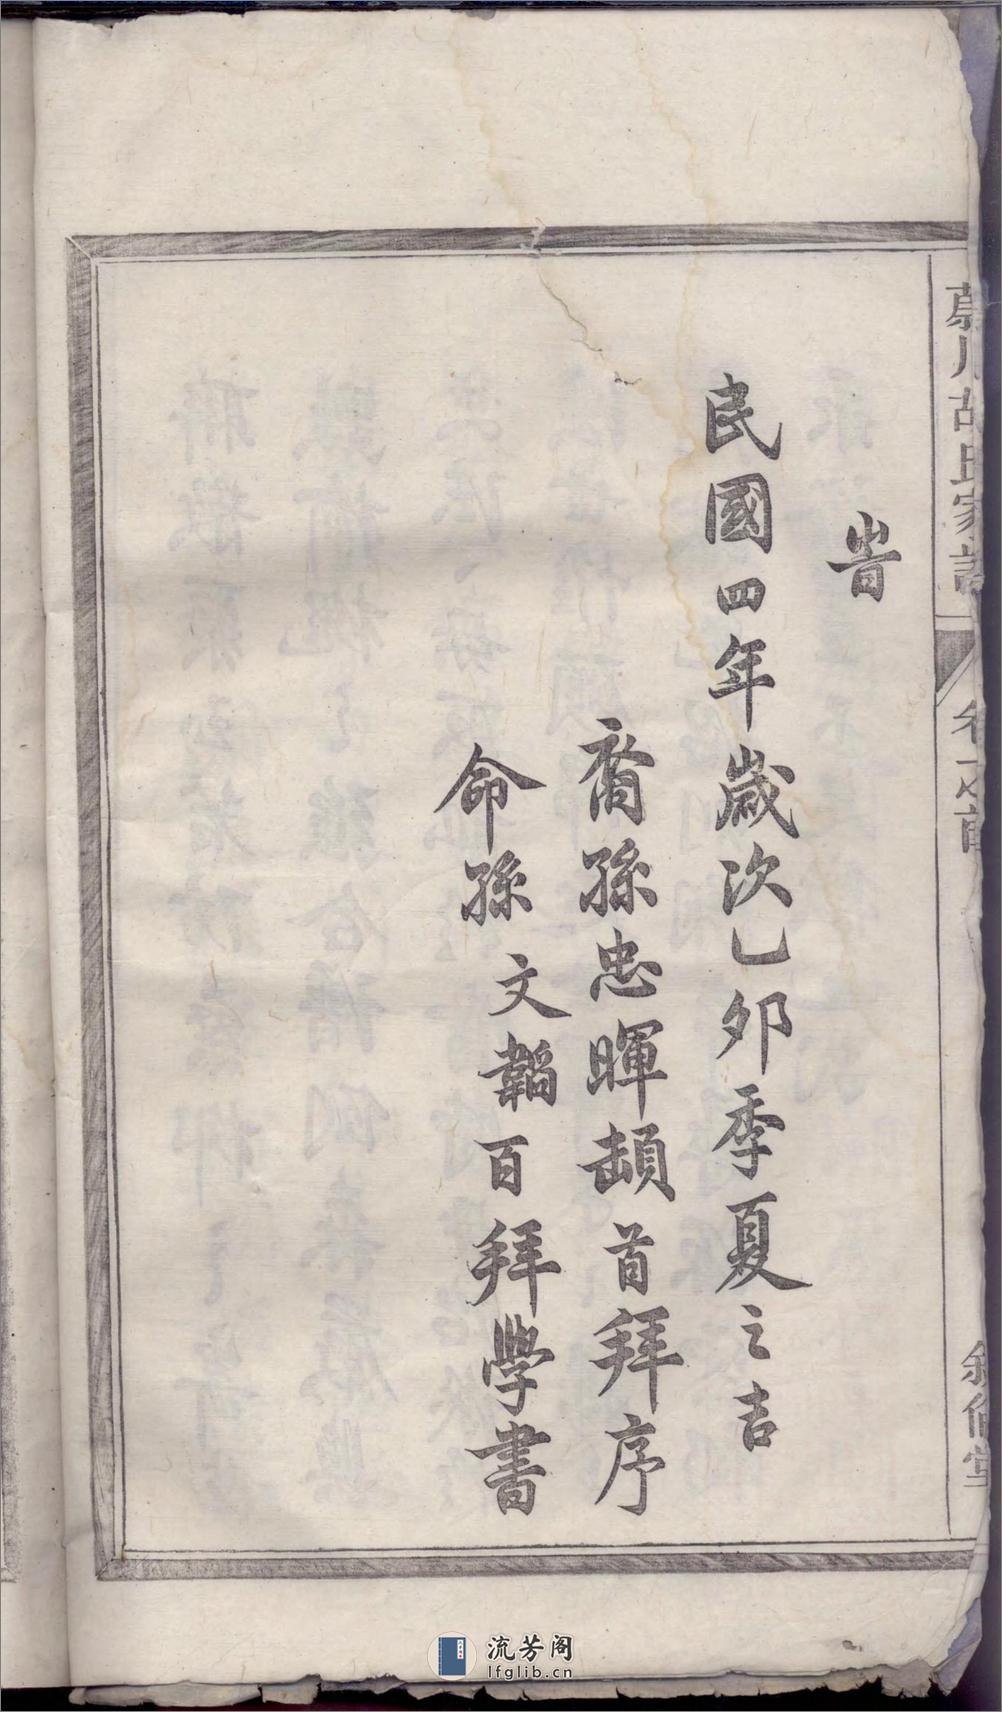 旹
民國四年歲次乙卯季夏之吉
裔孫忠暉頓首拜序
命孫文韜百拜學書
胡氏家譜
卷之首
敘倫堂
流芳阁
lfglib.cn